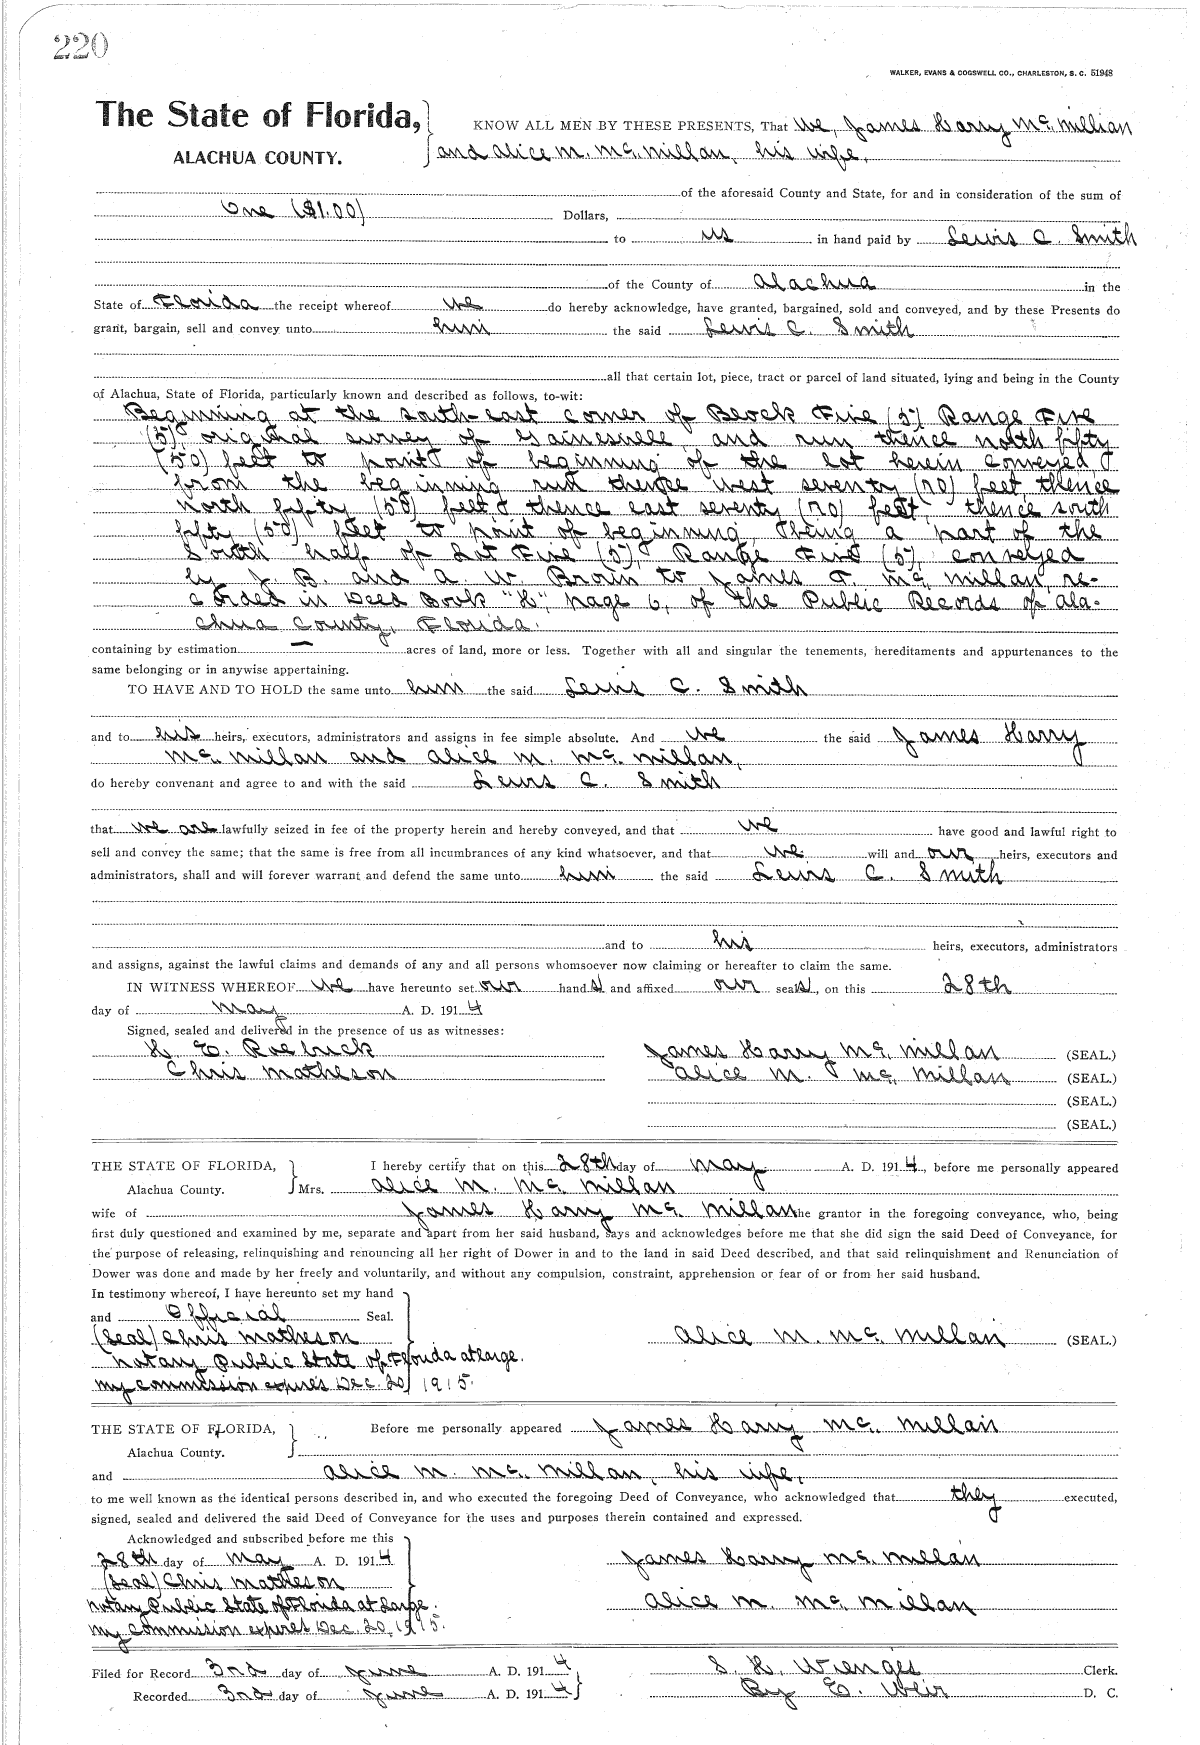 220
WALKER, EVANS & COGSWELL CO., CHARLESTON, S. C. 51948
The State of Florida,
ALACHUA COUNTY.
KNOW ALL MEN BY THESE PRESENTS, That We, James Harry Mc. Millian
and Alice M. Mc. Millan, his wife,
of the aforesaid County and State, for and in consideration of the sum of
One ($1.00) Dollars,
to us in hand paid by Lewis C. Smith
of the County of Alachua in the
State of Florida the receipt whereof we do hereby acknowledge, have granted, bargained, sold and conveyed, and by these Presents do
grant, bargain, sell and convey unto him the said Lewis C. Smith
all that certain lot, piece, tract or parcel of land situated, lying and being in the County
of Alachua, State of Florida, particularly known and described as follows, to-wit:
Beginning at the south-east corner of Block Five (5) Range Five
(5), original survey of Gainesville, and run thence north fifty
(50) feet to point of beginning of the lot herein conveyed,
from the beginning run thence west seventy (70) feet, thence
north fifty (50) feet, thence east seventy (70) feet, thence south
fifty (50) feet to point of beginning, being a part of the
South half of Lot Five (5), Range Five (5), conveyed
by J. B. and A. W. to James F. Mc. Millan, re-
corded in Deed Book "H", page 6, of the Public Records of Ala-
chua County, Florida.
containing by estimation — acres of land, more or less. Together with all and singular the tenements, hereditaments and appurtenances to the
same belonging or in anywise appertaining.
TO HAVE AND TO HOLD the same unto him the said Lewis C. Smith
and to his heirs, executors, administrators and assigns in fee simple absolute. And we the said James Harry
Mc. Millan and Alice M. Mc. Millan,
do hereby convenant and agree to and with the said Lewis C. Smith
that we are lawfully seized in fee of the property herein and hereby conveyed, and that we have good and lawful right to
sell and convey the same; that the same is free from all incumbrances of any kind whatsoever, and that we will and our heirs, executors and
administrators, shall and will forever warrant and defend the same unto him the said Lewis C. Smith
and to his heirs, executors, administrators
and assigns, against the lawful claims and demands of any and all persons whomsoever now claiming or hereafter to claim the same.
IN WITNESS WHEREOF we have hereunto set our hands and affixed our seals, on this 28th
day of May A. D. 1914
Signed, sealed and delivered in the presence of us as witnesses:
H. E. Roebuck James Harry Mc. Millan (SEAL.)
Chris Matheson Alice M. Mc. Millan (SEAL.)
(SEAL.)
(SEAL.)
THE STATE OF FLORIDA, I hereby certify that on this 28th day of May A. D. 1914, before me personally appeared
Alachua County. Mrs. Alice M. Mc. Millan
wife of James Harry Mc. Millan the grantor in the foregoing conveyance, who, being
first duly questioned and examined by me, separate and apart from her said husband, says and acknowledges before me that she did sign the said Deed of Conveyance, for
the purpose of releasing, relinquishing and renouncing all her right of Dower in and to the land in said Deed described, and that said relinquishment and Renunciation of
Dower was done and made by her freely and voluntarily, and without any compulsion, constraint, apprehension or fear of or from her said husband.
In testimony whereof, I have hereunto set my hand
and Official Seal.
(Seal) Chris Matheson Alice M. Mc. Millan (SEAL.)
Notary Public State of Florida at large.
My commission expires Dec. 20, 1915.
THE STATE OF FLORIDA, Before me personally appeared James Harry Mc. Millan
Alachua County.
and Alice M. Mc. Millan, his wife,
to me well known as the identical persons described in, and who executed the foregoing Deed of Conveyance, who acknowledged that they executed,
signed, sealed and delivered the said Deed of Conveyance for the uses and purposes therein contained and expressed.
Acknowledged and subscribed before me this
28th day of May A. D. 1914 James Harry Mc. Millan
(Seal) Chris Matheson
Notary Public State of Florida at Large. Alice M. Mc. Millan
My commission expires Dec. 20, 1915.
Filed for Record 3rd day of June A. D. 1914 S. H. Wienges Clerk.
Recorded 3rd day of June A. D. 1914 By E. Weir D. C.